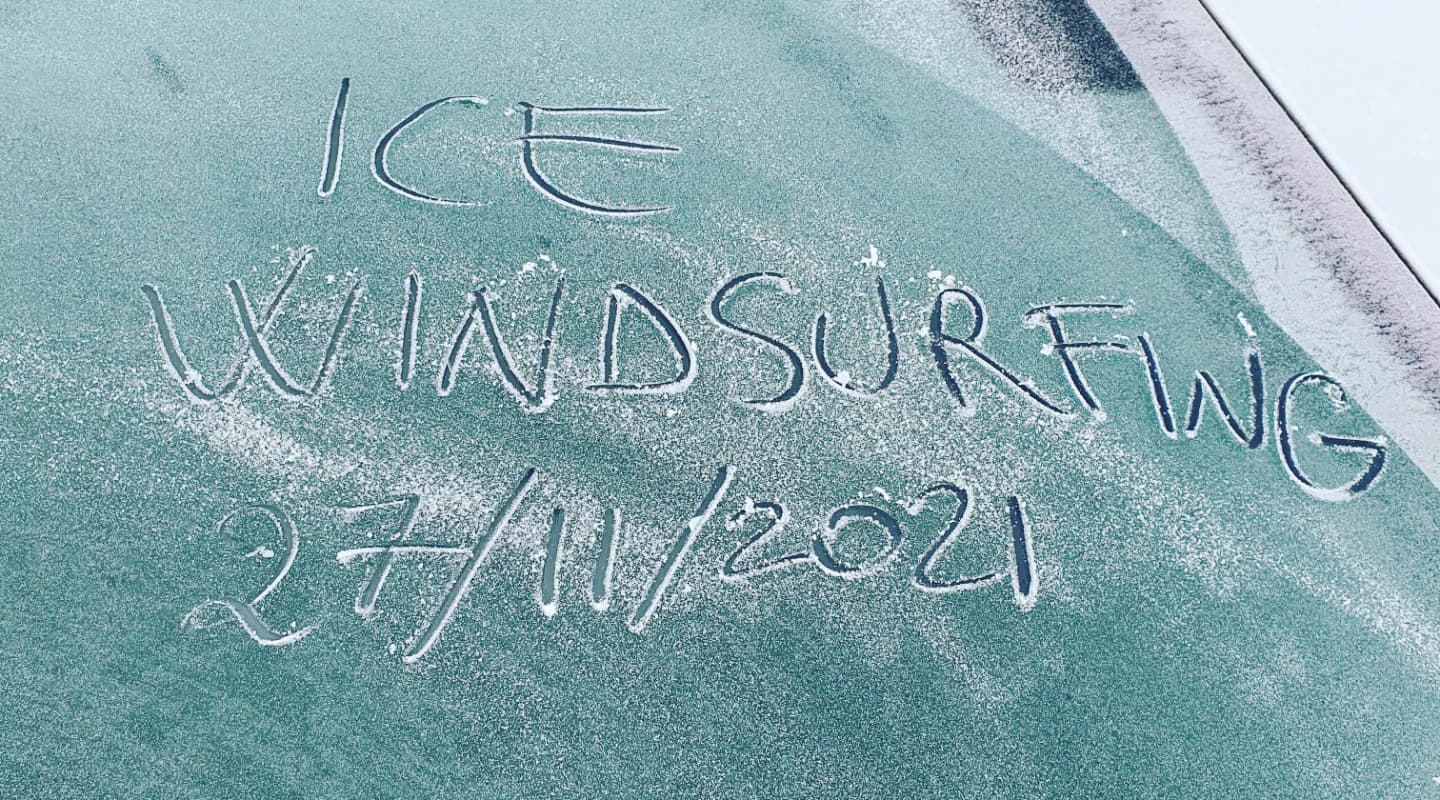 ICE
WINDSURFING
27/11/2021